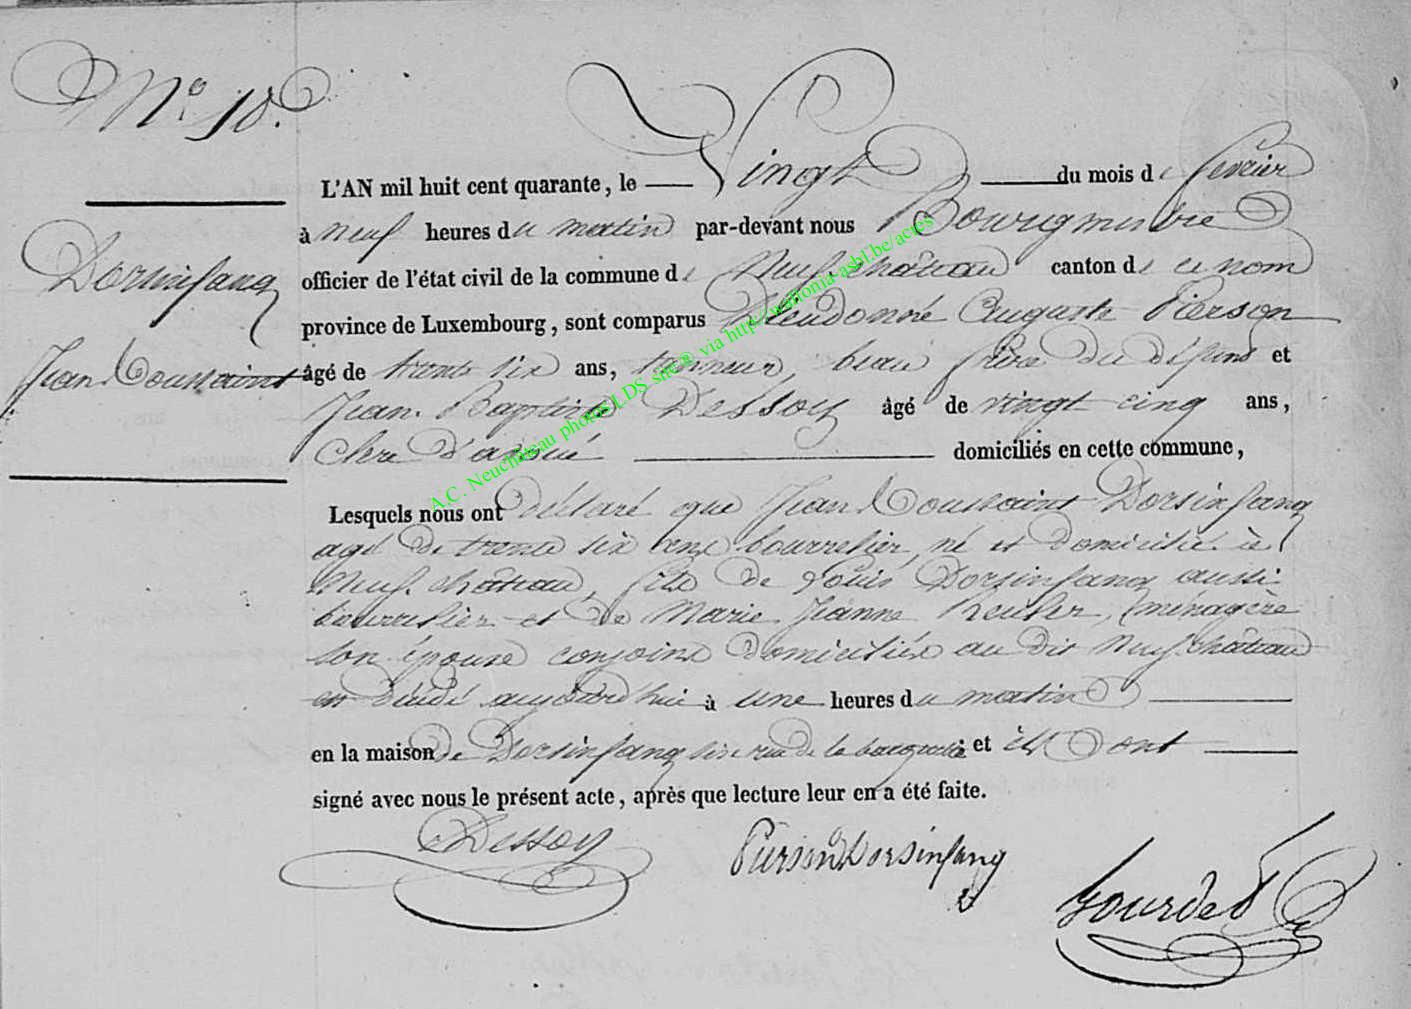 N° 18.
Vingt
L'AN mil huit cent quarante, le du mois de fevrier
à neuf heures du matin par-devant nous Bourgmestre
officier de l'état civil de la commune de Neufchâteau canton de ce nom
province de Luxembourg, sont comparus Dieudonné Auguste Pierson
âgé de trente six ans, tanneur, beau frère du défunt et
Jean Baptiste Dessoy âgé de vingt cinq ans,
Clerc d'avoué domiciliés en cette commune,
Dorsinfang
Jean Toussaint
Lesquels nous ont déclaré que Jean Toussaint Dorsinfang
agé de trente six ans bourrelier, né et domicilié à
Neufchâteau, fils de Louis Dorsinfang aussi
bourrelier et de Marie Jeanne Reuter, ménagère
son épouse conjoins domiciliés au dit Neufchâteau
est décédé aujourd'hui à une heures du matin
en la maison de Dorsinfang sise rue de la et ils ont
signé avec nous le présent acte, après que lecture leur en a été faite.
Dessoy
Pierson Dorsinfang
A.C. Neuchâteau photos LDS site® via http://wallonia-asbl.be/actes